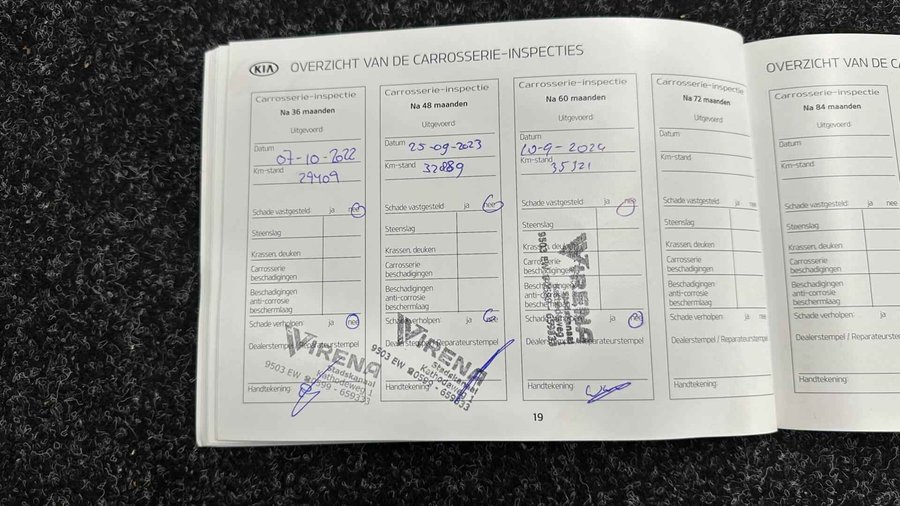 KIA OVERZICHT VAN DE CARROSSERIE-INSPECTIES
Carrosserie-inspectie
Na 36 maanden
Uitgevoerd:
Datum 07-10-2022
Km-stand 29409
Schade vastgesteld: ja nee
Steenslag
Krassen, deuken
Carrosserie
beschadigingen
Beschadigingen
anti-corrosie
beschermlaag
Schade verholpen: ja nee
Dealerstempel / Reparateurstempel
VIRENA
Stadskanaal
Kathodeweg 1
9503 EW 0599 - 659333
Handtekening:
Carrosserie-inspectie
Na 48 maanden
Uitgevoerd:
Datum 25-09-2023
Km-stand 32889
Schade vastgesteld: ja nee
Steenslag
Krassen, deuken
Carrosserie
beschadigingen
Beschadigingen
anti-corrosie
beschermlaag
Schade verholpen: ja nee
Dealerstempel / Reparateurstempel
VIRENA
Stadskanaal
Kathodeweg 1
9503 EW 0599 - 659333
Handtekening:
Carrosserie-inspectie
Na 60 maanden
Uitgevoerd:
Datum
-9-2024
Km-stand 35321
Schade vastgesteld: ja nee
Steenslag
Krassen, deuken
Carrosserie
beschadigingen
Beschadigingen
anti-corrosie
beschermlaag
Schade verholpen: ja nee
Dealerstempel / Reparateurstempel
VIRENA
Stadskanaal
9503 EW
Handtekening:
Carrosserie-inspectie
Na 72 maanden
Uitgevoerd:
Datum
Km-stand
Schade vastgesteld: ja nee
Steenslag
Krassen, deuken
Carrosserie
beschadigingen
Beschadigingen
anti-corrosie
beschermlaag
Schade verholpen: ja
Dealerstempel / Reparateurstempel
Handtekening:
19
OVERZICHT VAN DE CA
Carrosserie-inspectie
Na 84 maanden
Uitgevoerd:
Datum
Km-stand
Schade vastgesteld: ja nee
Steenslag
Krassen, deuken
Carrosserie
beschadigingen
Beschadigingen
anti-corrosie
beschermlaag
Schade verholpen: ja nee
Dealerstempel / Reparateurstempel
Handtekening: